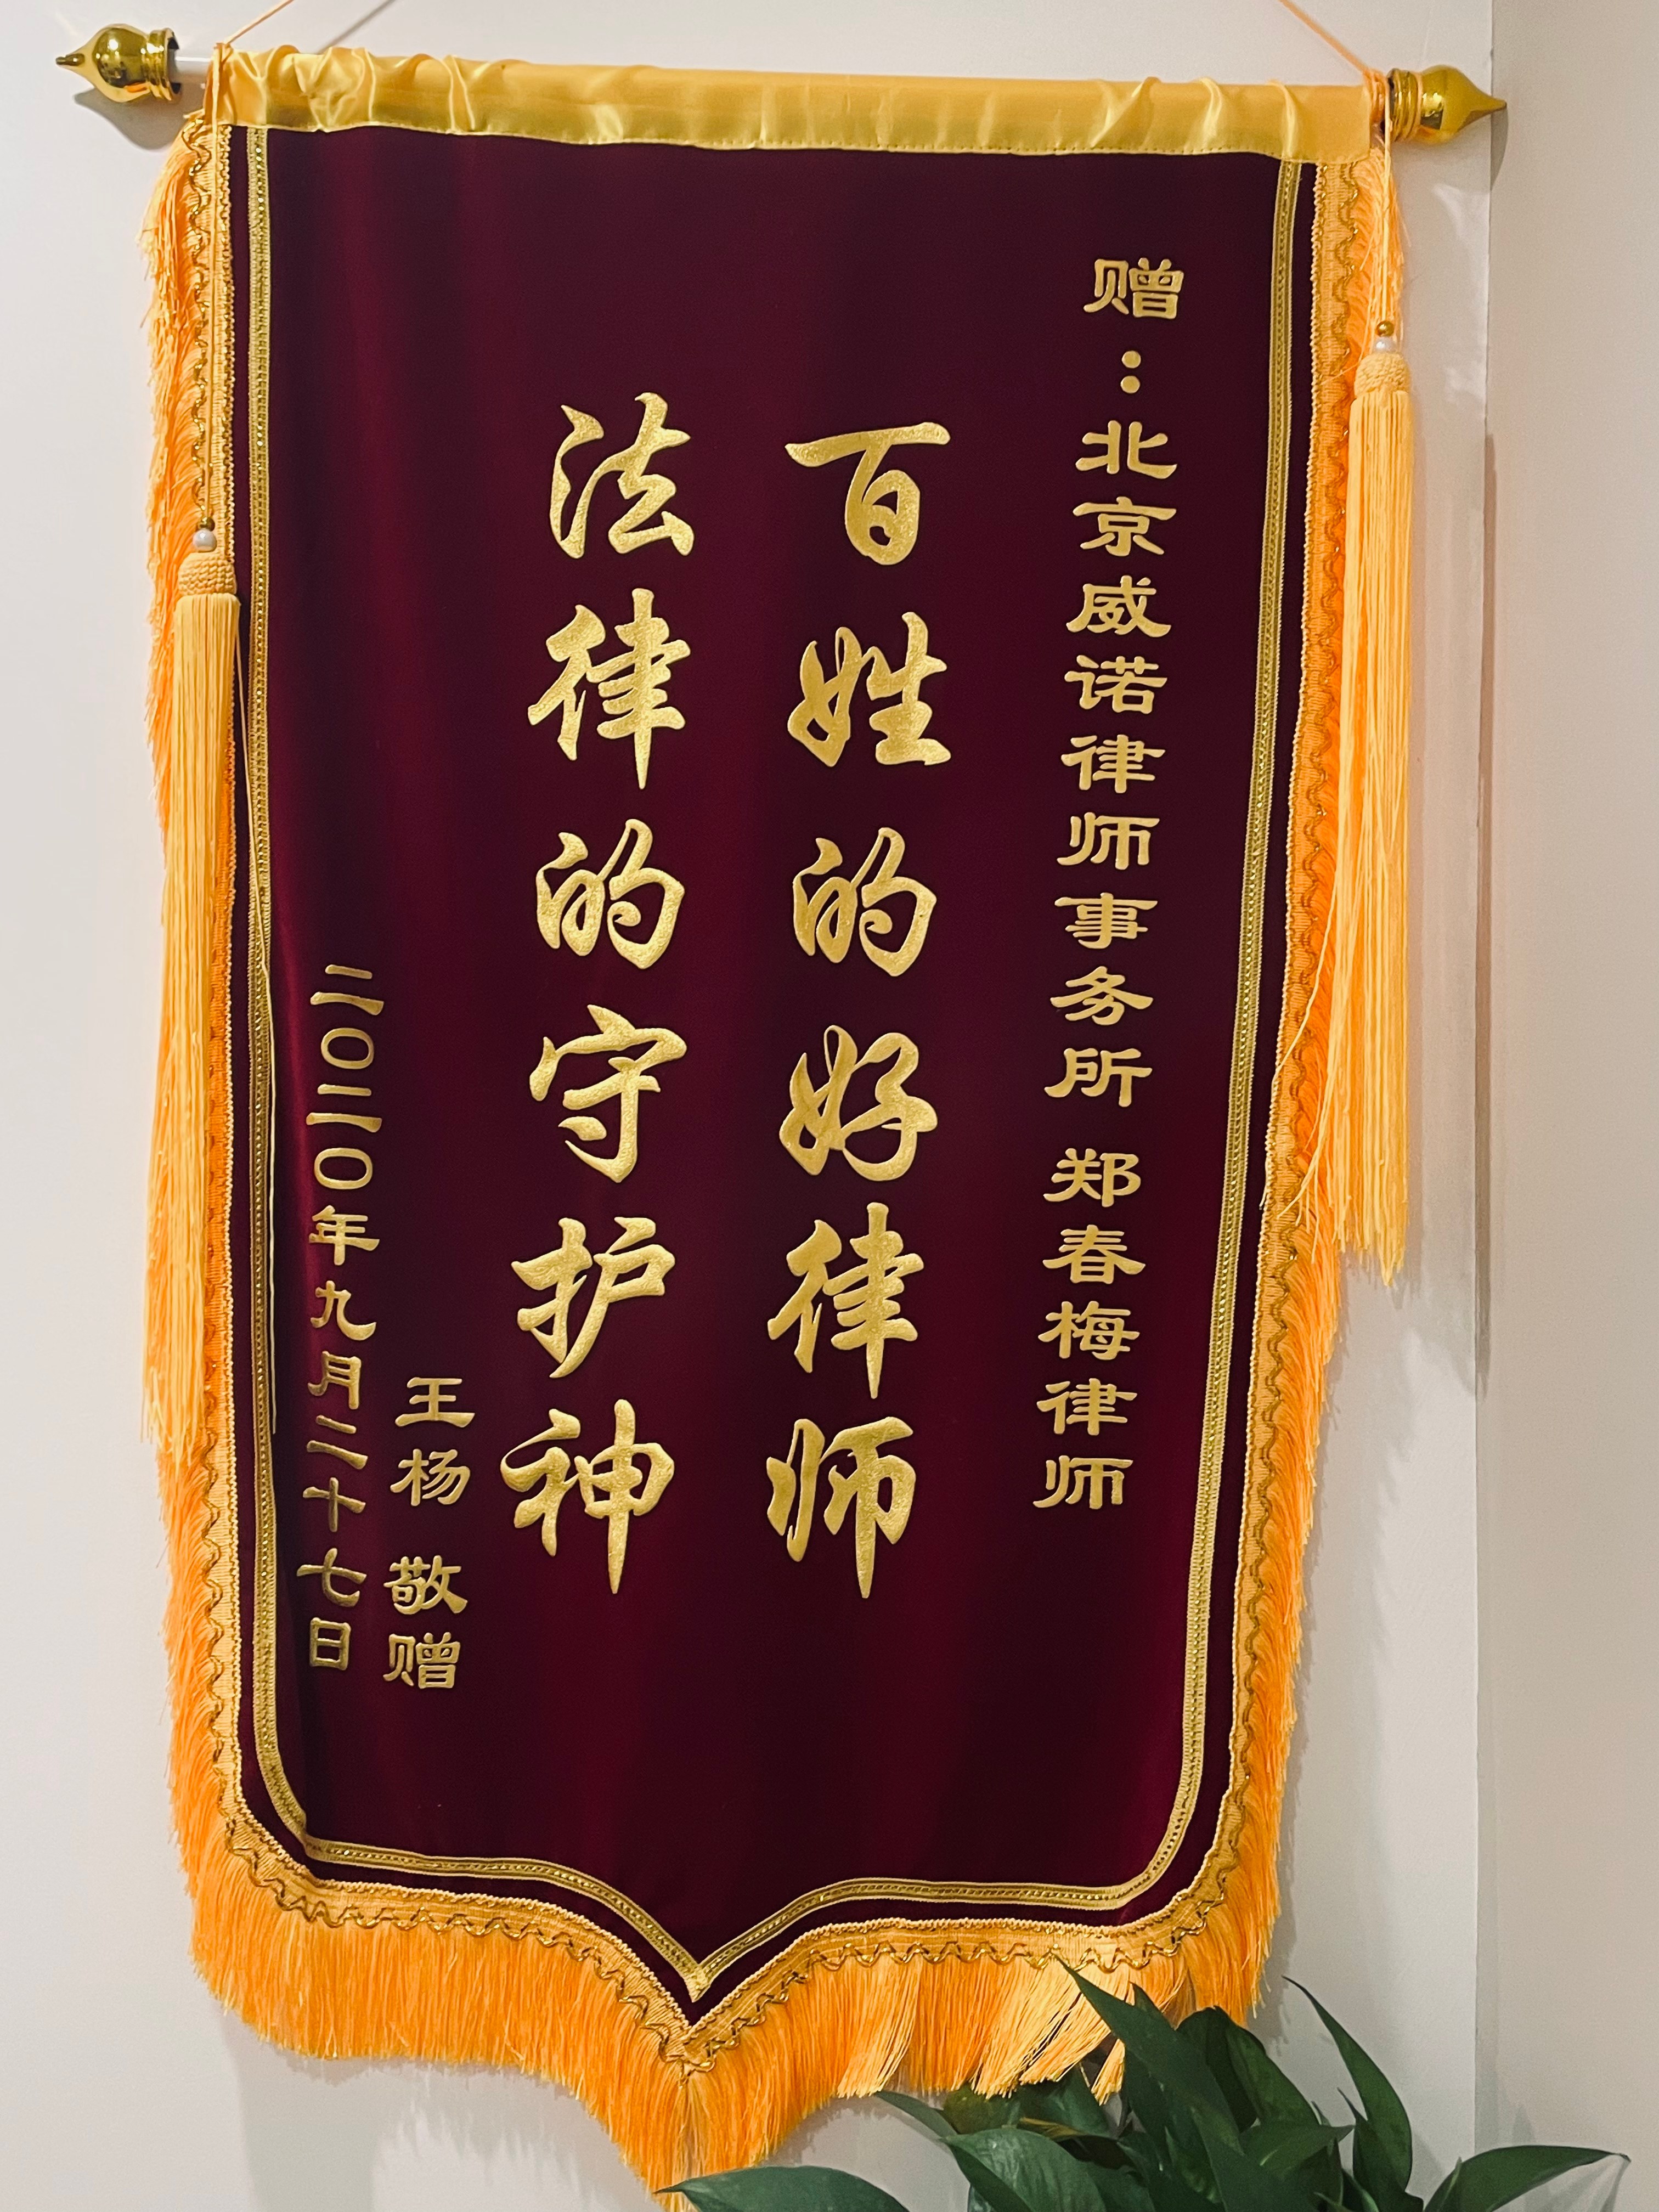 赠：北京威诺律师事务所 郑春梅律师
百姓的好律师
法律的守护神
王杨 敬赠
二〇二〇年九月二十七日